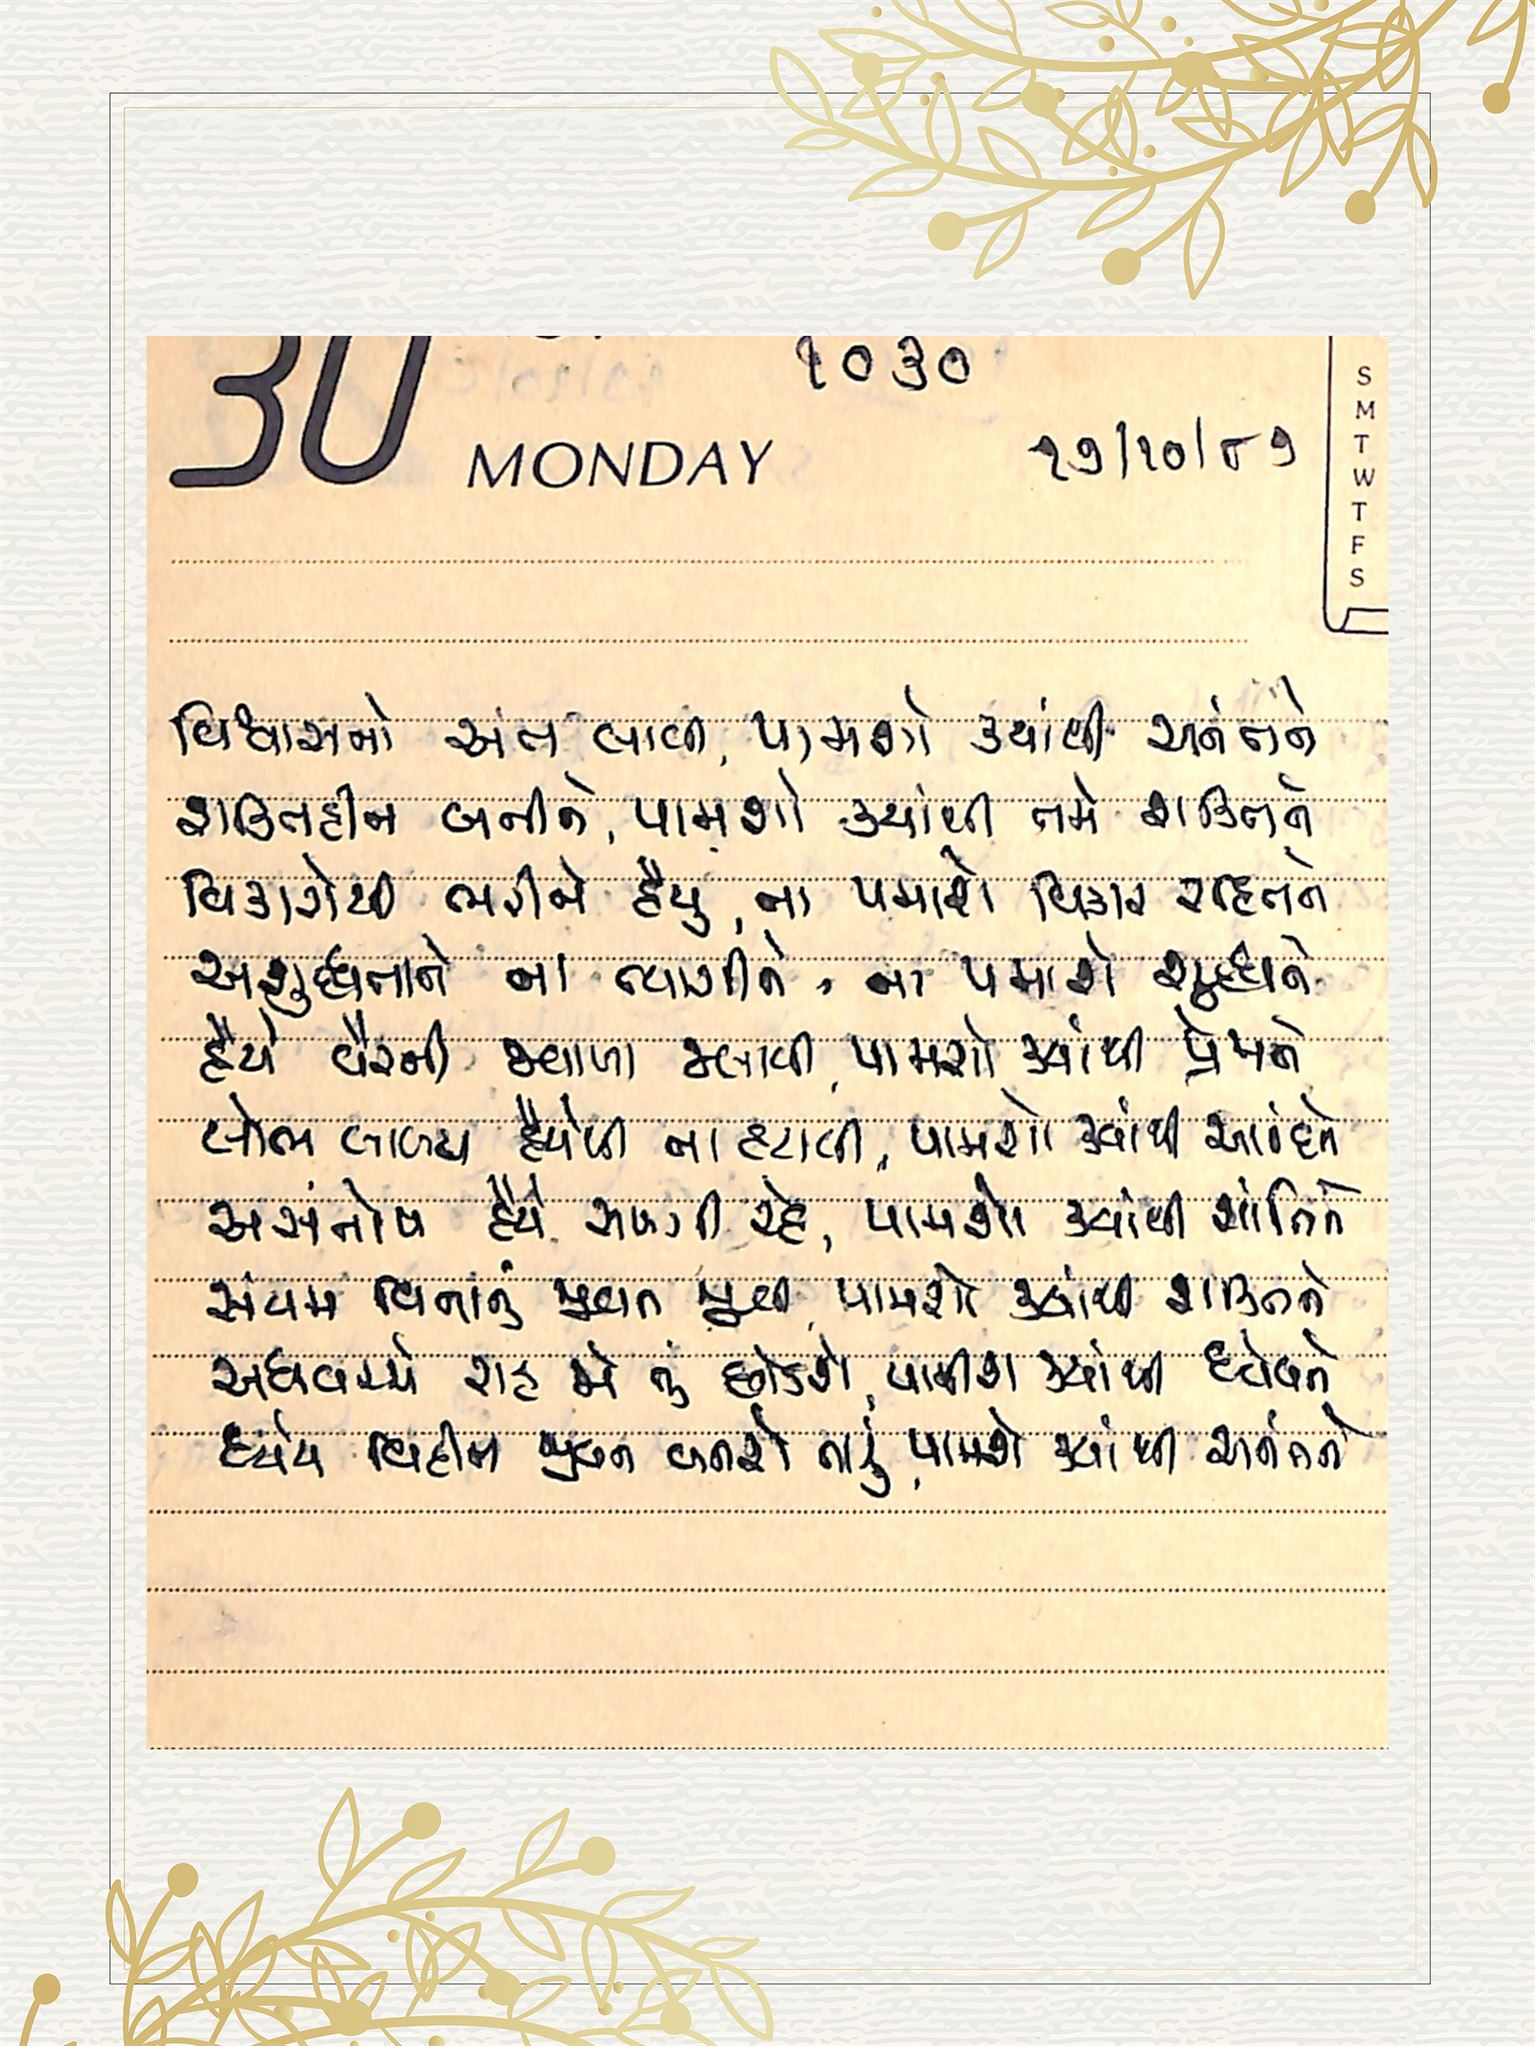 30
૧૦૩૦
MONDAY
૨૭/૧૦/૮૭
S
M
T
W
T
F
S
વિશ્વાસનો અંત લાવી, પામશો ક્યાંથી અનંતને
શક્તિહીન બનીને, પામશો ક્યાંથી તમે શક્તિને
વિકારોથી ભરીને હૈયું, ના પમાશે વિકાર રહિતને
અશુદ્ધતાને ના ત્યાગીને, ના પમાશે શુદ્ધને
હૈયે વૈરની જ્વાળા જલાવી, પામશો ક્યાંથી પ્રેમને
લોભ લાલચ હૈયેથી ના હટાવી, પામશો ક્યાંથી આનંદને
અસંતોષ હૈયે સળગી રહે, પામશો ક્યાંથી શાંતિને
સંયમ વિનાનું જીવન જીવી, પામશો ક્યાંથી શક્તિને
અધવચ્ચે રાહ જો તું છોડશે, પામીશ ક્યાંથી ધ્યેયને
ધ્યેય વિહીન જીવન બનશે તારું, પામશે ક્યાંથી અનંતને